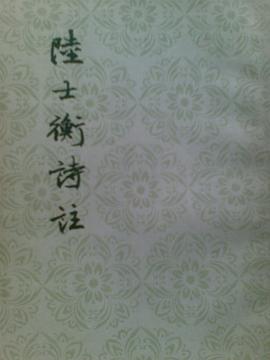 陸士衡詩註